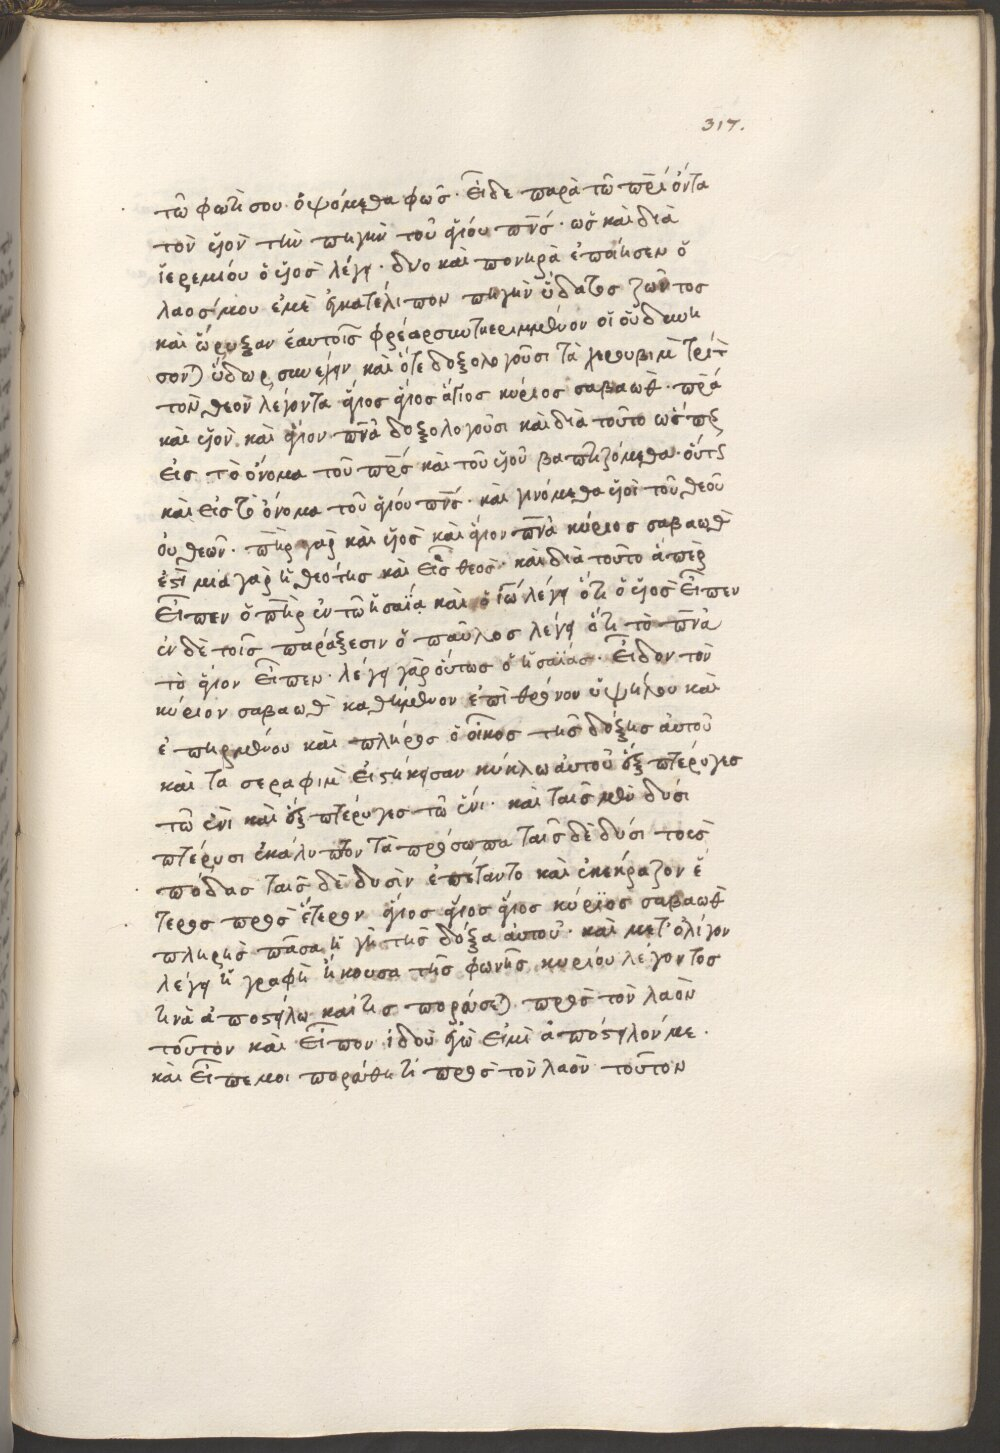 317.
τῶ φωτί σου ὀψόμεθα φῶς· Εἰ δὲ παρὰ τῶ πρὶ ὄντα
τὸν υἱὸν τὴν πηγὴν τοῦ ἁγίου πνς· ὡς καὶ διὰ
ἱερεμίου ὁ υἱὸς λέγει· δυο καὶ πονηρὰ ἐποίησεν ὁ
λαος μου ἐμὲ ἐγκατέλιπον πηγὴν ὕδατος ζῶντος
καὶ ὤρυξαν ἑαυτοῖς οἳ οὐ δυνή
σονται ὕδωρ συνέχειν καὶ ὅτε δοξολογοῦσι τὰ χερουβιμ
τὸν θεὸν λέγοντα ἅγιος ἅγιος ἅγιος κύριος σαβαωθ· πρα
καὶ υἱὸν καὶ ἅγιον πνα δοξολογοῦσι καὶ διὰ τοῦτο ὥσπερ
εἰς τὸ ὄνομα τοῦ πρς καὶ τοῦ υἱοῦ βαπτιζόμεθα· οὕτως
καὶ εἰς τὸ ὄνομα τοῦ ἁγίου πνς· καὶ γινόμεθα υἱοὶ τοῦ θεοῦ
οὐ θεῶν· πηρ γὰρ καὶ υἱὸς καὶ ἅγιον πνα κύριος σαβαωθ
ἐστι μία γὰρ ἡ θεότης καὶ εἷς θεὸς· καὶ διὰ τοῦτο ἅπερ
Εἶπεν ὁ πηρ ἐν τῶ ἡσαΐα καὶ ὁ ἰω λέγει ὅτι ὁ υἱὸς Εἶπεν
ἐν δὲ τοῖς παράξεσιν ὁ παῦλος λέγει ὅτι τὸ πνα
τὸ ἅγιον Εἶπεν· λέγει γὰρ οὕτως ὁ ἡσαΐας· Εἶδον τὸν
κύριον σαβαωθ καθήμενον ἐπὶ θρόνου ὑψηλου καὶ
ἐπηρμένου καὶ πλήρης ὁ οἶκος τῆς δόξης αὐτοῦ
καὶ τα σεραφιμ εἱστήκεισαν κύκλω αὐτοῦ ἓξ πτέρυγες
τῶ ἑνὶ καὶ ἓξ πτέρυγες τῶ ἑνί· καὶ ταῖς μὲν δύσι
πτέρυσι ἐκάλυπτον τὰ πρόσωπα ταῖς δὲ δύσι τοὺς
πόδας ταῖς δὲ δυσὶν ἐπέταντο καὶ ἐκεκραζον ἕ
τερος πρὸς ἕτερον ἅγιος ἅγιος ἅγιος κύριος σαβαωθ
πληρης πᾶσα ἡ γῆ τῆς δόξα αὐτοῦ· καὶ μετ' ὀλίγον
λέγει ἡ γραφὴ ἤκουσα τῆς φωνῆς κυρίου λέγοντος
τινὰ ἀποστείλω καὶ τις πορεύσεται πρὸς τὸν λαὸν
τοῦτον καὶ Εἶπον ἰδοὺ ἐγὼ εἰμὶ ἀπόστειλον με·
καὶ Εἶπε μοι πορεύθητι πρὸς τὸν λαὸν τοῦτον